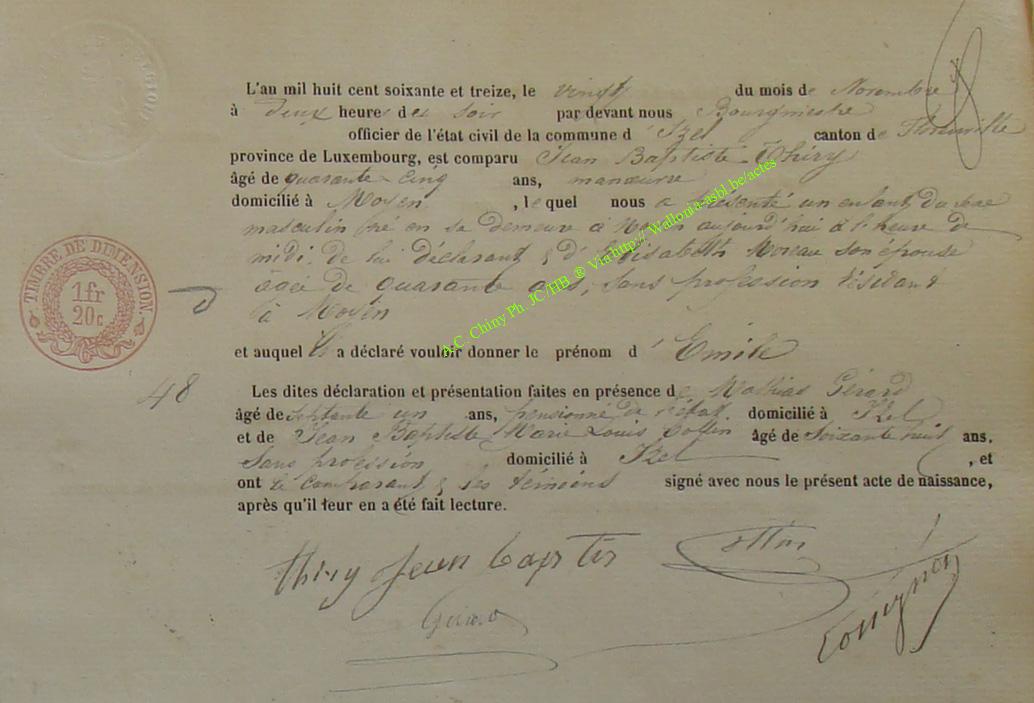 L'an mil huit cent soixante et treize, le vingt du mois de Novembre
à deux heures des soir par devant nous Bourgmestre
officier de l'état civil de la commune d'Izel canton de Florenville
province de Luxembourg, est comparu Jean Baptiste Thiry
âgé de quarante cinq ans, manœuvre
domicilié à Moyen, lequel nous a présenté un enfant du sexe
masculin né en sa demeure à Moyen aujourd'hui à l'heure de
midi, de lui déclarant & d'Elisabeth Moreau son épouse
âgée de quarante ans, sans profession résidant
à Moyen
et auquel il a déclaré vouloir donner le prénom d'Emile
48
Les dites déclaration et présentation faites en présence de Mathias Gérard
âgé de septante un ans, pensionné de l'état, domicilié à Izel
et de Jean Baptiste Marie Louis Collin âgé de soixante huit ans,
sans profession domicilié à Izel, et
ont le comparant & les témoins signé avec nous le présent acte de naissance,
après qu'il leur en a été fait lecture.
thiry Jean bapstis
TIMBRE DE DIMENSION.
1 fr
20 c
A.C. Chiny Ph. JC/HB ® Via http:// Wallonia-asbl.be/actes